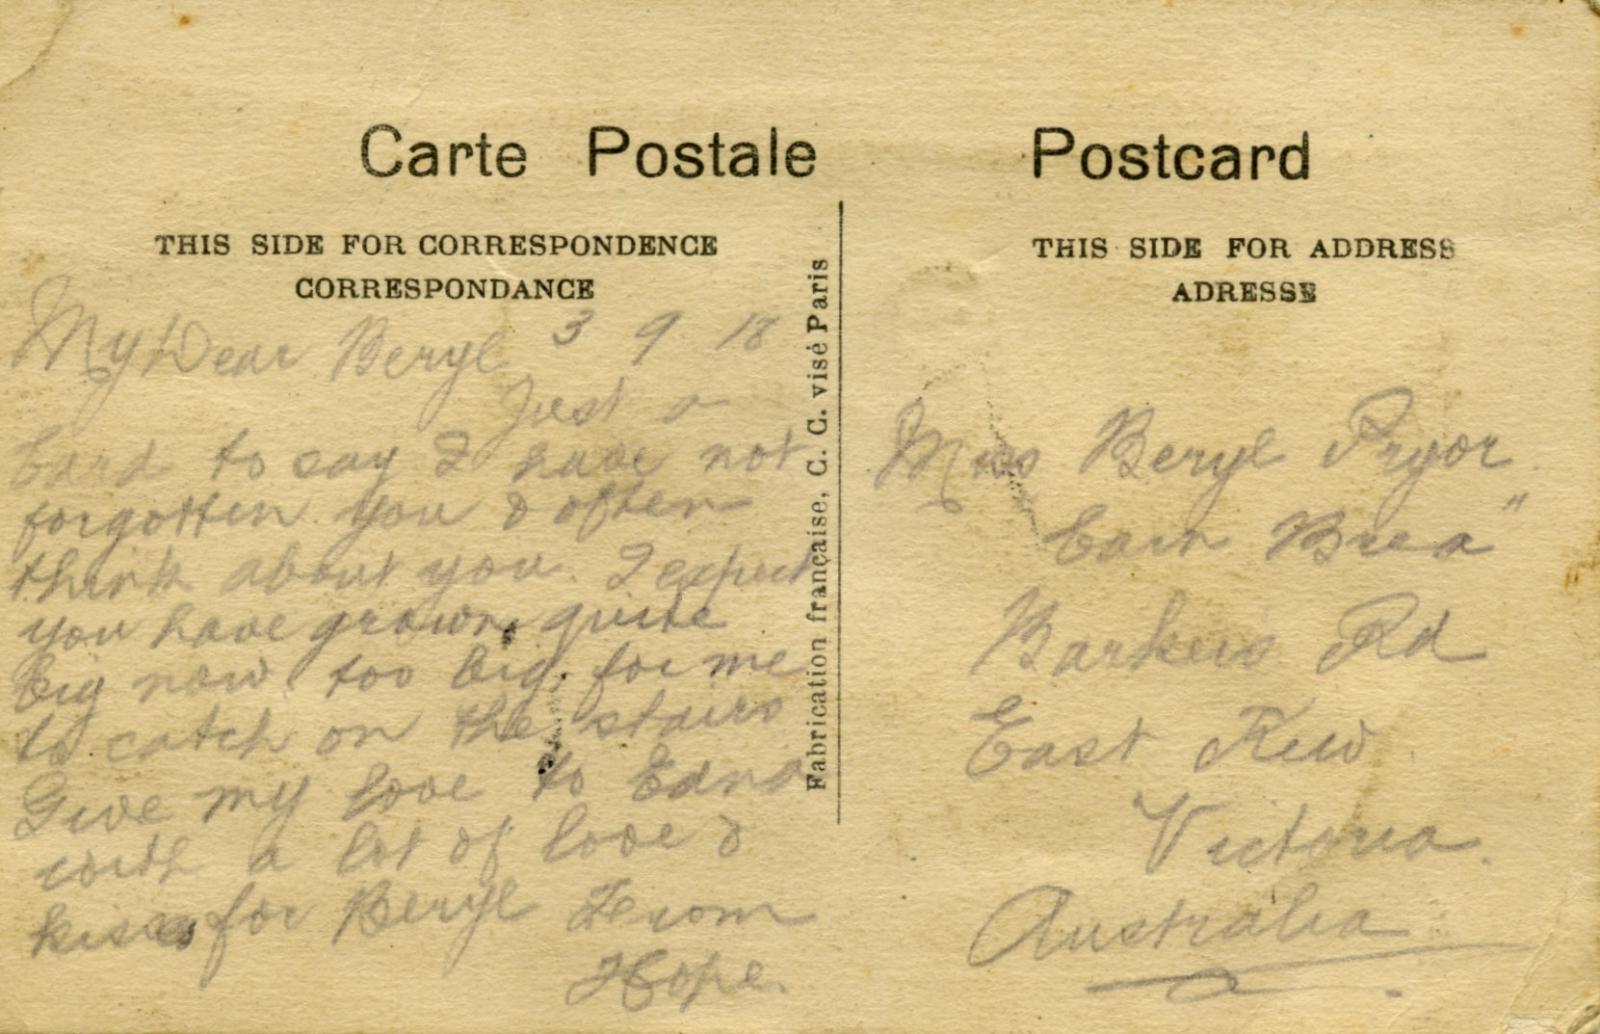 Carte Postale
THIS SIDE FOR CORRESPONDENCE
CORRESPONDANCE
My Dear Beryl 3 9 18
Just a
card to say I have not
forgotten you & often
think about you. I expect
you have grown quite
big now too big for me
to catch on the stairs
Give my love to Edna
with a lot of love &
kisses for Beryl From
Hope.
Fabrication française, C. C. visé Paris
Postcard
THIS SIDE FOR ADDRESS
ADRESSE
Miss Beryl Pryor
Cairn Brea"
Barkers Rd
East Kew
Victoria.
Australia